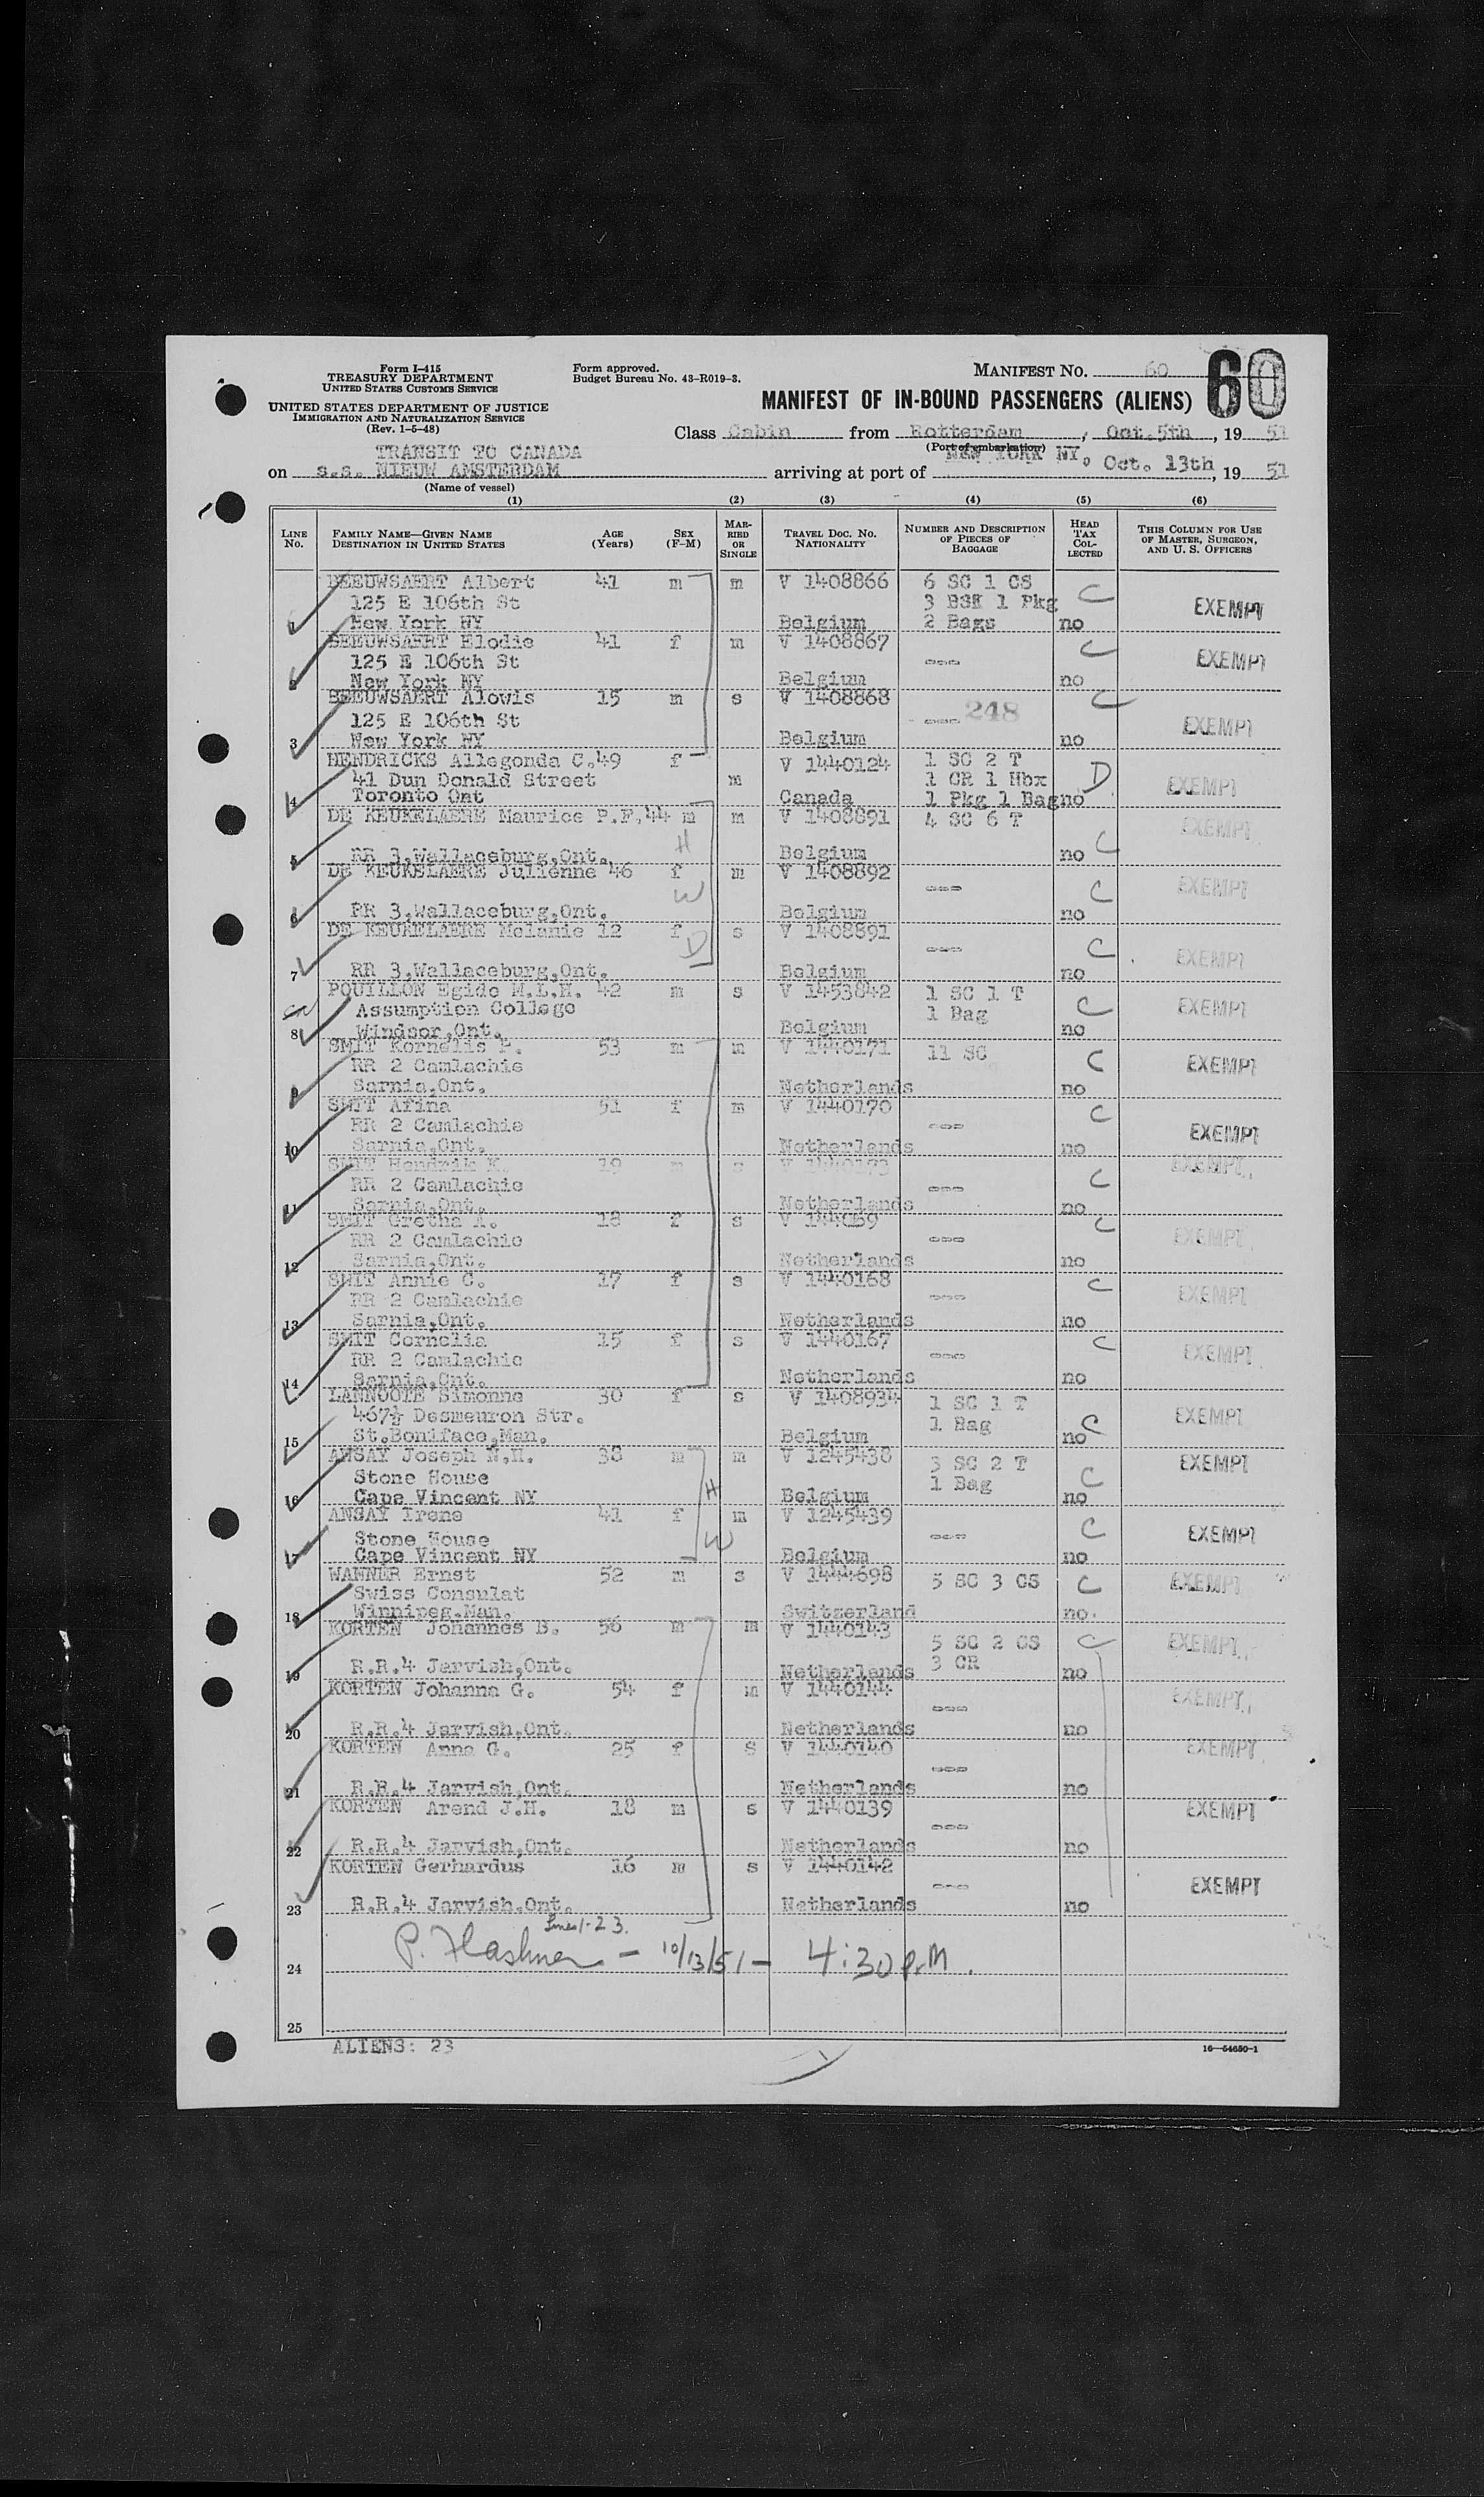 Form I-415
TREASURY DEPARTMENT
UNITED STATES CUSTOMS SERVICE
UNITED STATES DEPARTMENT OF JUSTICE
IMMIGRATION AND NATURALIZATION SERVICE
(Rev. 1-5-48)
Form approved.
Budget Bureau No. 43-R019-3.
MANIFEST NO. 60
60
MANIFEST OF IN-BOUND PASSENGERS (ALIENS)
Class Cabin from Rotterdam, Oct.5th, 19 51
(Port of embarkation)
TRANSIT TO CANADA
on s.s. NIEUW AMSTERDAM arriving at port of NEW YORK NY. Oct. 13th, 19 51
(Name of vessel)
(1) (2) (3) (4) (5) (6)
LINE No. FAMILY NAME—GIVEN NAME DESTINATION IN UNITED STATES AGE (Years) SEX (F-M) MARRIED OR SINGLE TRAVEL DOC. NO. NATIONALITY NUMBER AND DESCRIPTION OF PIECES OF BAGGAGE HEAD TAX COLLECTED THIS COLUMN FOR USE OF MASTER, SURGEON, AND U. S. OFFICERS
BEEUWSAERT Albert 41 m m V 1408866 6 SC 1 CS C
125 E 106th St 3 BSK 1 Pkg EXEMPT
1 New York NY Belgium 2 Bags no
BEEUWSAERT Elodie 41 f m V 1408867 C
125 E 106th St --- EXEMPT
2 New York NY Belgium no
BEEUWSAERT Alowis 15 m s V 1408868 C
125 E 106th St --- 248 EXEMPT
3 New York NY Belgium no
HENDRICKS Allegonda C.49 f V 1440124 1 SC 2 T
41 Dun Donald Street m 1 CR 1 Hbx D EXEMPT
4 Toronto Ont Canada 1 Pkg 1 Bag no
DE KEUKELAERE Maurice P.F.44 m m V 1408891 4 SC 6 T EXEMPT
H
5 RR 3,Wallaceburg,Ont. Belgium no C
DE KEUKELAERE Julienne 46 f m V 1408892 --- EXEMPT
W C
6 RR 3,Wallaceburg,Ont. Belgium no
DE KEUKELAERE Melanie 12 f s V 1408891 ---
D C EXEMPT
7 RR 3,Wallaceburg,Ont. Belgium no
POUILLON Egide M.L.H. 42 m s V 1453842 1 SC 1 T
Assumption College 1 Bag C EXEMPT
8 Windsor,Ont. Belgium no
SMIT Kornelis P. 53 m m V 1440171 11 SC
RR 2 Camlachie C EXEMPT
9 Sarnia,Ont. Netherlands no
SMIT Afina 51 f m V 1440170 C
RR 2 Camlachie --- EXEMPT
10 Sarnia,Ont. Netherlands no
SMIT Hendrik K. 19 m s V 1440173 EXEMPT
RR 2 Camlachie --- C
11 Sarnia,Ont. Netherlands no
SMIT Gretha A. 18 f s V 144069 C
RR 2 Camlachie --- EXEMPT
12 Sarnia,Ont. Netherlands no
SMIT Annie C. 17 f s V 1440168 C
RR 2 Camlachie --- EXEMPT
13 Sarnia,Ont. Netherlands no
SMIT Cornelia 15 f s V 1440167 C
RR 2 Camlachie --- EXEMPT
14 Sarnia,Ont. Netherlands no
LANNOOTE Simonne 30 f s V 1408934 1 SC 1 T
467½ Desmeuron Str. 1 Bag EXEMPT
15 St.Boniface,Man. Belgium no C
ANSAY Joseph N.H. 38 m m V 1245438 3 SC 2 T EXEMPT
Stone House 1 Bag C
16 Cape Vincent NY H Belgium no
ANSAY Irene 41 f m V 1245439 C
Stone House W --- EXEMPT
17 Cape Vincent NY Belgium no
WANNER Ernst 52 m s V 1444698 5 SC 3 CS C EXEMPT
Swiss Consulat
18 Winnipeg,Man. Switzerland no
KORTEN Johannes B. 56 m m V 1440143 5 SC 2 CS C EXEMPT
3 CR
19 R.R.4 Jarvish,Ont. Netherlands no
KORTEN Johanna G. 54 f m V 1440144 --- EXEMPT
20 R.R.4 Jarvish,Ont. Netherlands no
KORTEN Anna G. 25 f S V 1440140 --- EXEMPT
21 R.R.4 Jarvish,Ont. Netherlands no
KORTEN Arend J.H. 18 m s V 1440139 --- EXEMPT
22 R.R.4 Jarvish,Ont. Netherlands no
KORTEN Gerhardus 16 m s V 1440142 --- EXEMPT
23 R.R.4 Jarvish,Ont. Netherlands no
Lines 1-23.
P. - 10/13/51 - 4:30 P.M.
24
25
ALIENS: 23
16—54650-1